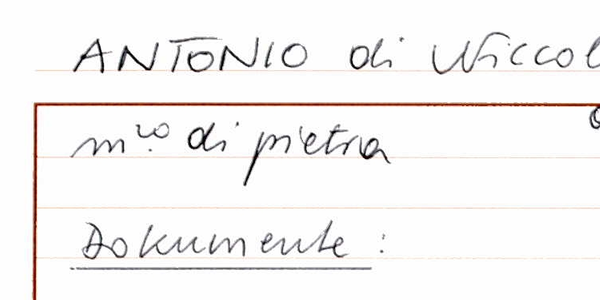 ANTONIO di Niccol
m.ro di pietra
Dokumente :